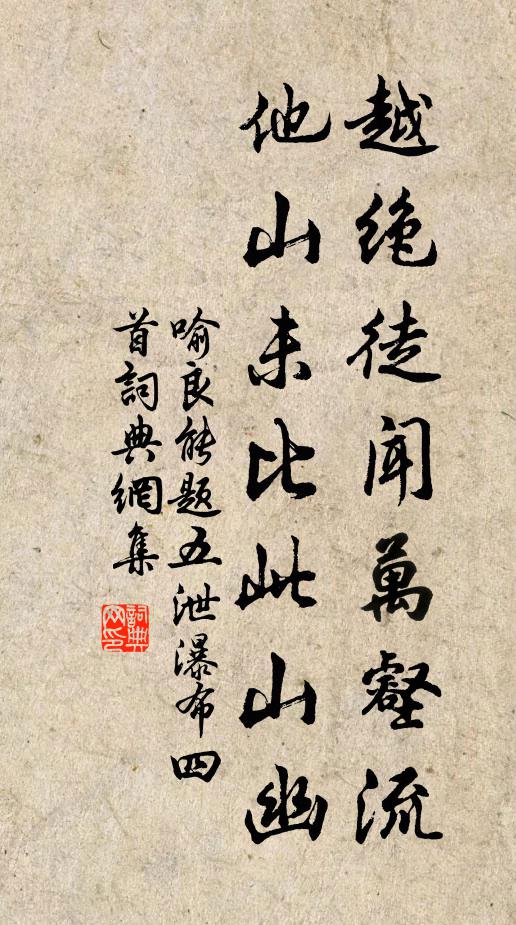 越絶徒聞萬壑流
他山未比此山幽
喻良能題五泄瀑布四
首詞典網集
詞典
网印